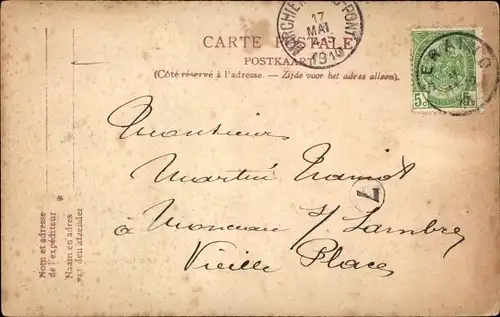 CARTE POSTALE
POSTKAART
(Côté réservé à l'adresse. — Zijde voor het adres alleen).
17
MAI
1910
5c 5c
Monsieur
Martin
7
à Monceau s/ Sambre
Vieille Place
Nom et adresse
de l'expéditeur
*
Naam en adres
van den afzender